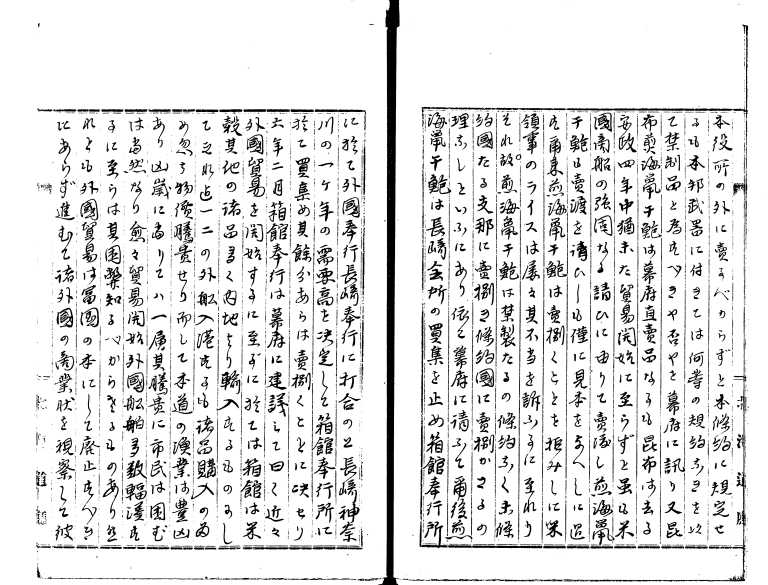 本役所の外に賣るべからずと本條約に規定せ
るも本邦武器に付きては何等の規約なきを以
て禁制品と為すべきや否やを幕府に訊り又昆
布煎海鼠干鮑は幕府直賣品なるも昆布は去る
安政四年中猶未た貿易開始に至らずと虽も米
國商船の強固なる請ひに由りて賣渡し煎海鼠
干鮑も賣渡を請ひしも僅に見本を與へしに過
きす爾来煎海鼠干鮑は賣捌くことを拒みしに米
領事のライスは屡々其不当を訴ふるに至れり
それ故煎海鼠干鮑は禁製たるの條約なく未條
約國たる支那に賣捌き條約國に賣捌かさるの
理なしといふにあり依て幕府に請ふて爾後煎
海鼠干鮑は長崎会所の買集を止め箱館奉行所
に於て外國奉行長崎奉行に打合の上長崎神奈
川の一ケ年の需要高を决定して箱館奉行所に
於て買集め其餘分あらは賣捌くことに决せり
六年二月箱館奉行は幕府に建議して曰く近々
外國貿易を開始するに至るに於ては箱館は米
穀其他の諸品多く内地より輸入するものなし
て是れ迄一二の外舩入港するも諸品購入の為
め忽ち物價騰貴せり而して本道の漁業は豊凶
あり凶歳に当りては一層其騰貴に市民は困む
は当然なり愈々貿易開始外國船舶多数輻湊す
るに至らは其困弊知るべからさるものあり然
れとも外國貿易は冨國の本にして廃止すべき
にあらず進むて諸外國の商業状を視察して彼